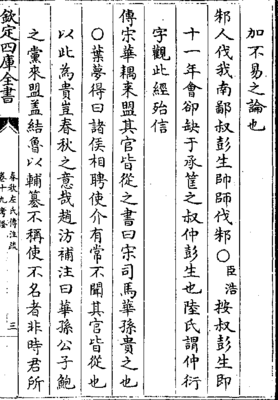 加不易之論也
邾人伐我南鄙叔彭生帥師伐邾○臣浩按叔彭生即
十一年會卻缺于承筐之叔仲彭生也陸氏謂仲衍
字觀此經殆信
傳宋華耦來盟其官皆從之書曰宋司馬華孫貴之也
○葉夢得曰諸侯相聘使介有常不聞其官皆從也
以此為貴豈春秋之意哉趙汸補注曰華孫公子鮑
之黨來盟蓋結魯以輔篡不稱使不名者非時君所
欽定四庫全書
春秋左氏傳注疏
卷十九考證
三